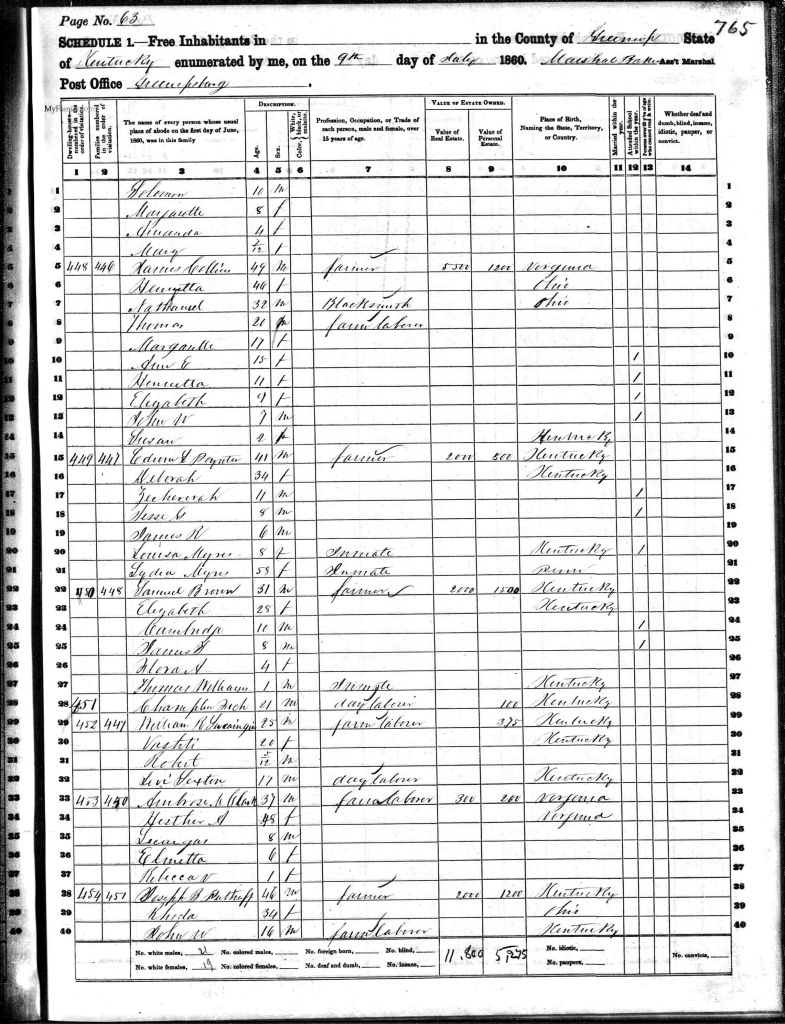 Page No. 63
765
SCHEDULE 1.—Free Inhabitants in in the County of Greenup State
of Kentucky enumerated by me, on the 9th day of July 1860. Marshal Baker Ass't Marshal
Post Office Greenupsburg.
Dwelling-houses numbered in the order of visitation.
Families numbered in the order of visitation.
The name of every person whose usual place of abode on the first day of June, 1860, was in this family
DESCRIPTION.
Age.
Sex.
Color, White, black, or mulatto.
Profession, Occupation, or Trade of each person, male and female, over 15 years of age.
VALUE OF ESTATE OWNED.
Value of Real Estate.
Value of Personal Estate.
Place of Birth, Naming the State, Territory, or Country.
Married within the year.
Attended School within the year.
Whether deaf and dumb, blind, insane, idiotic, pauper, or convict.
1 2 3 4 5 6 7 8 9 10 11 12 13 14
1 Solomon 10 m 1
2 Margarette 8 f 2
3 Amanda 4 f 3
4 Mary /12 f 4
5 448 446 James Collins 49 m farmer 5500 1200 Virginia 5
6 Henrietta 46 f Ohio 6
7 Nathaniel 32 m Blacksmith Ohio 7
8 Thomas 20 m farm laborer 8
9 Margarette 17 f 9
10 Ann E 15 f 1 10
11 Henrietta 11 f 1 11
12 Elizabeth 9 f 1 12
13 John W 7 m 1 13
14 Susan 2 f Kentucky 14
15 449 447 Edwin Poynter 41 m farmer 2000 800 Kentucky 15
16 Deborah 34 f Kentucky 16
17 11 m 1 17
18 Jesse G 8 m 1 18
19 James R 6 m 19
20 Louisa Myres 8 f Inmate Kentucky 1 20
21 Lydia Myres 58 f Inmate Penn 21
22 450 448 Samuel Brown 31 m farmer 2000 1500 Kentucky 22
23 Elizabeth 28 f Kentucky 23
24 10 m 1 24
25 James 8 m 1 25
26 Flora A 4 f 26
27 Thomas Williams 1 m Inmate Kentucky 27
28 451 21 m day labour 100 Kentucky 28
29 452 449 William R 25 m farm laborer 375 Kentucky 29
30 Vashti 20 f Kentucky 30
31 Robert /12 m 31
32 Levi Sexton 17 m day labour Kentucky 32
33 453 450 Ambrose Clark 37 m farm laborer 300 200 Virginia 33
34 Hesther A 48 f Virginia 34
35 8 m 35
36 Elmetta 6 f 36
37 Rebecca V 1 f 37
38 454 451 Joseph B 46 m farmer 2000 1200 Kentucky 38
39 Rhoda 34 f Ohio 39
40 John W 16 m farm laborer Kentucky 40
No. white males, 21 No. colored males, No. foreign born, No. blind, 11,800 5,275 No. idiotic, No. convicts,
No. white females, 19 No. colored females, No. deaf and dumb, No. insane, No. paupers,